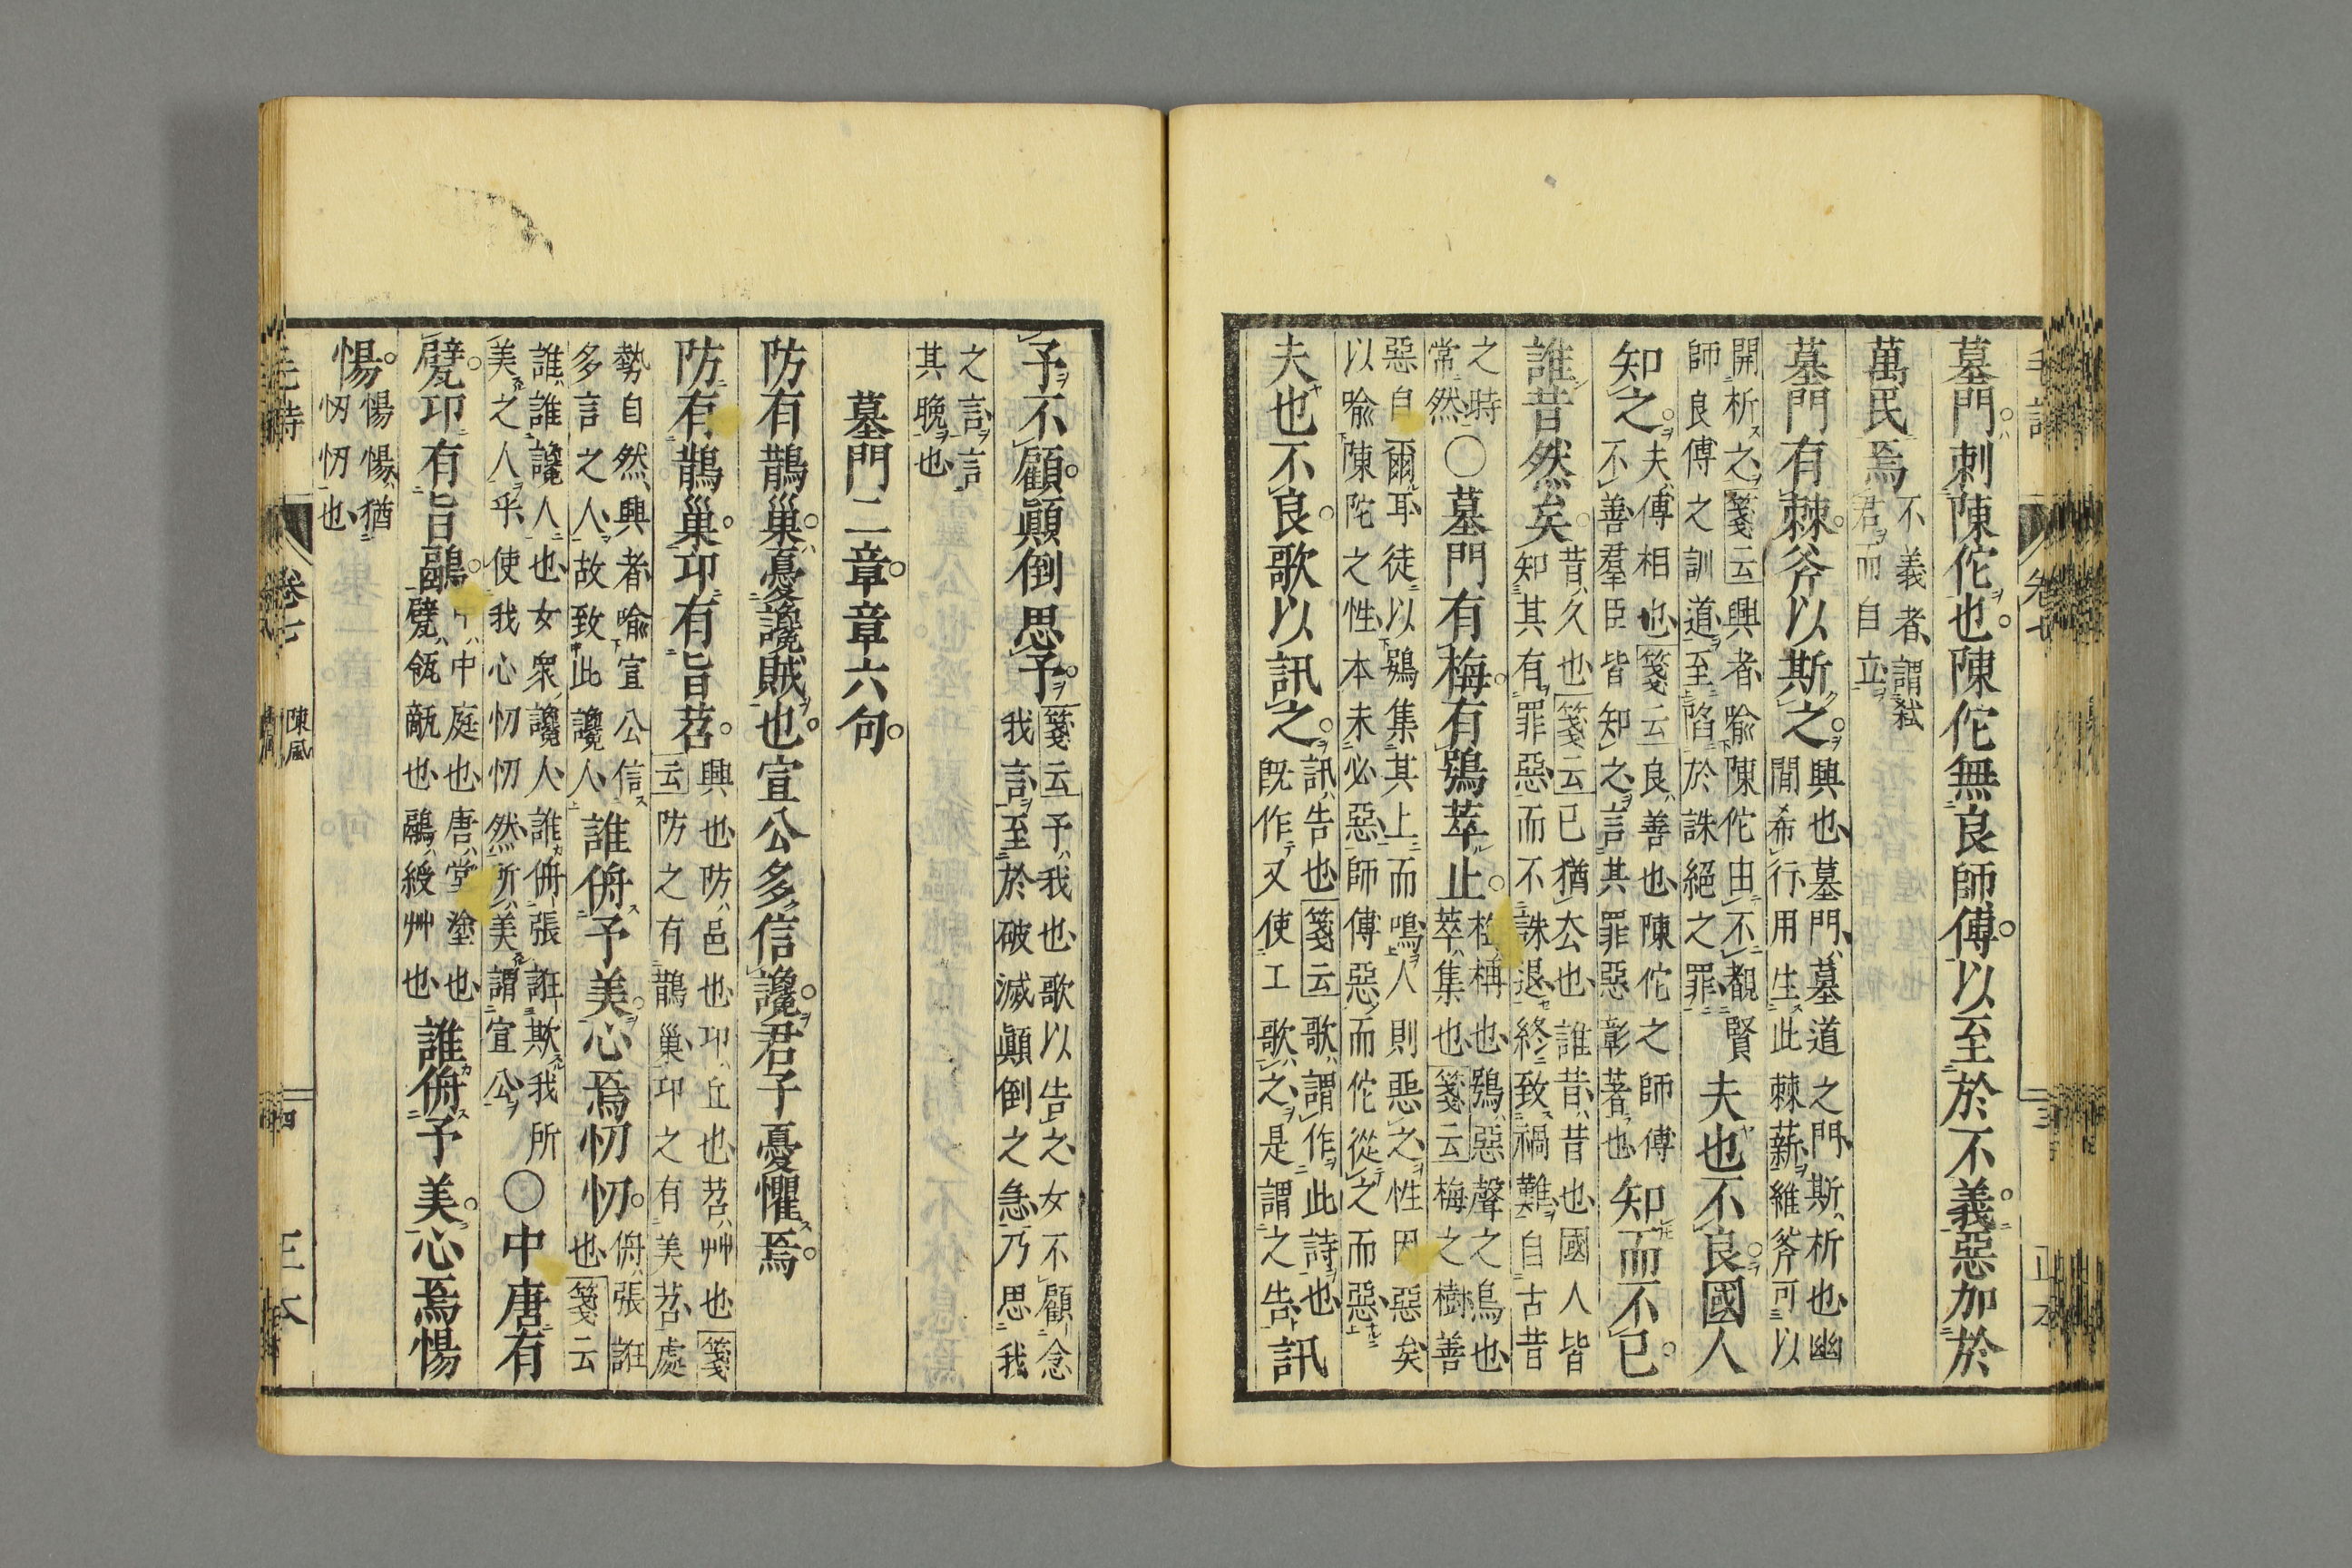 墓門。刺陳佗也。陳佗無良師傅。以至於不義。惡加於
萬民焉 不義者、謂弑
君而自立
墓門有棘。斧以斯之。 興也、墓門、墓道之門、斯、析也、幽
閒希行用生此棘薪、維斧可以
開析之、箋云興者、喻陳佗由不覩賢
師良傅之訓道、至陷於誅絕之罪、 夫也不良。國人
知之。 夫、傅相也、箋云良、善也、陳佗之師傅
不善、羣臣皆知之、言其罪惡彰著也 知而不已。
誰昔然矣。 昔、久也、箋云已猶去也、誰昔、昔也、國人皆
知其有罪惡、而不誅退、終致禍難、自古昔
之時
常然 〇墓門有梅。有鴞萃止。 梅、柟也、鴞、惡聲之鳥也、
萃、集也、箋云梅之樹善
惡自爾耳、徒以鴞集其上而鳴、人則惡之、性因惡矣
以喻陳陀之性、本未必惡、師傅惡、而佗從之而惡、
夫也不良。歌以訊之。 訊、告也、箋云歌、謂作此詩也、
既作又使工歌之、是謂之告、 訊
予不顧。顚倒思予。 箋云予、我也、歌以告之、女不顧念
我言、至於破滅顚倒之急、乃思我
之言、言
其晚也
墓門二章。章六句。
防有鵲巢。憂讒賊也。宣公多信讒。君子憂懼焉。
防有鵲巢。卭有旨苕。 興也、防、邑也、卭、丘也、苕、艸也、箋
云防之有鵲巢、卭之有美苕、處
勢自然、興者、喻宣公信
多言之人、故致此讒人、 誰侜予美。心焉忉忉。 侜、張誑
也、箋云
誰、誰讒人也、女衆讒人、誰侜張誑欺我所
美之人乎、使我心忉忉然、所美、謂宣公 〇中唐有
甓。卭有旨鷊。 中、中庭也、唐、堂塗也、
甓、瓴甋也、鷊、綬艸也、 誰侜予美。心焉惕
惕。 惕惕、猶
忉忉也、
毛詩 卷七 陳風 四